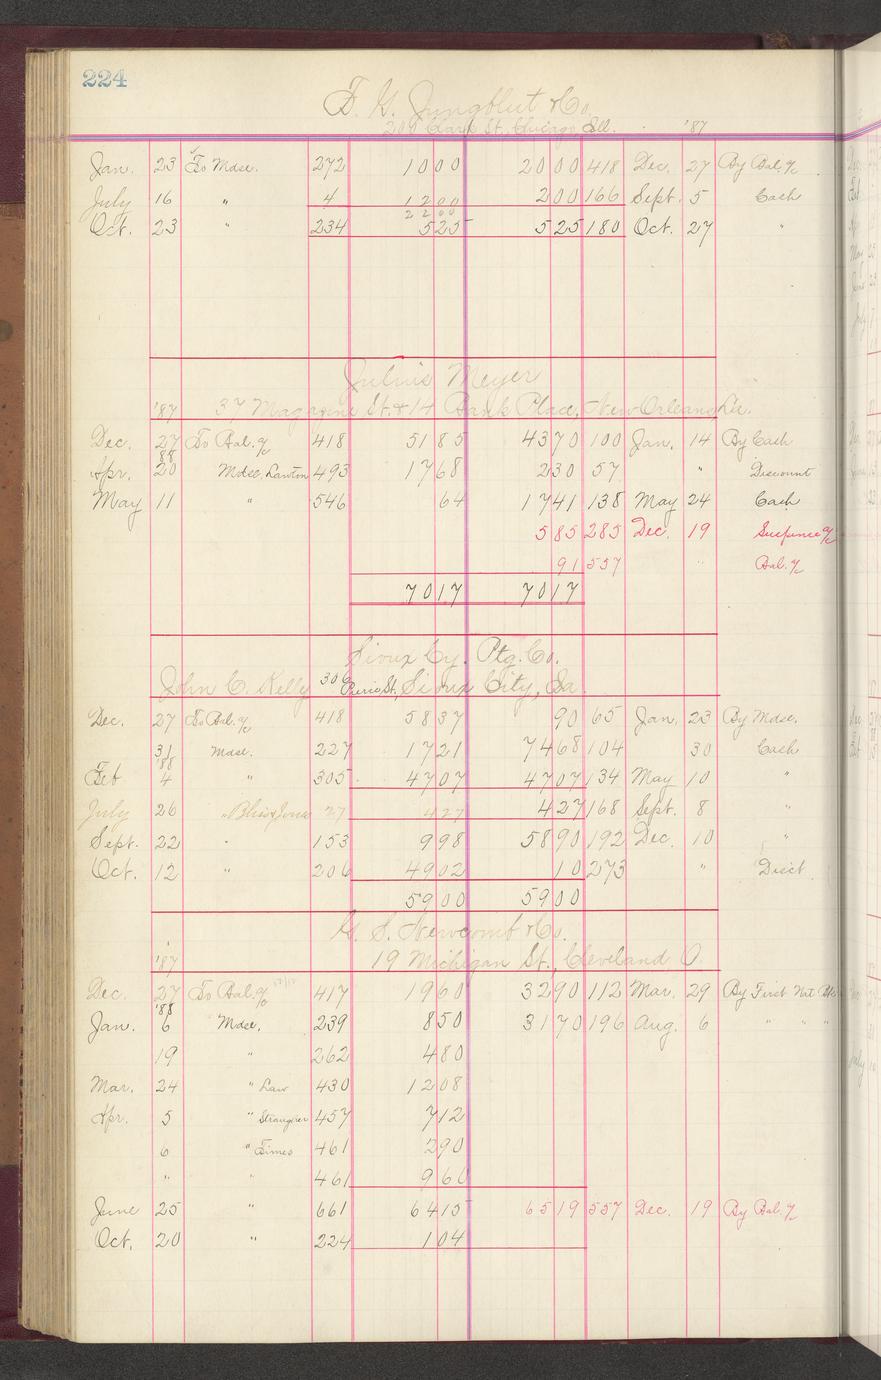 224
F. G. Jungblut & Co.
209 Clark St., Chicago, Ill. '87
Jan. 23 To Mdse. 272 1000 2000 418 Dec. 27 By Bal. a/c
July 16 " 4 1200 200 166 Sept. 5 Cash
2200
Oct. 23 " 234 525 525 180 Oct. 27 "
Julius Meyer
'87 37 Magazine St. & 14 Bank Place, New Orleans, La.
Dec. 27 To Bal. a/c 418 5185 4370 100 Jan. 14 By Cash
'88
Apr. 20 Mdse. Lawton 493 1768 230 57 " Discount
May 11 " 546 64 1741 138 May 24 Cash
585 285 Dec. 19 Suspence a/c
91 557 " Bal. a/c
7017 7017
Sioux Cy. Ptg. Co.
John C. Kelly 306 St., Sioux City, Ia.
Dec. 27 To Bal. a/c 418 5837 90 65 Jan. 23 By Mdse.
31 Mdse. 227 1721 7468 104 30 Cash
'88
Feb 4 " 305 4707 4707 134 May 10 "
July 26 " Bliss & Jones 27 427 427 168 Sept. 8 "
Sept. 22 " 153 998 5890 192 Dec. 10 "
Oct. 12 " 206 4902 10 273 " Disct.
5900 5900
G. S. Newcomb & Co.
'87 19 Michigan St., Cleveland O.
Dec. 27 To Bal. a/c 417 1960 3290 112 Mar. 29 By First Nat Bk
'88
Jan. 6 Mdse. 239 850 3170 196 Aug. 6 " " "
19 " 262 480
Mar. 24 " Law 430 1208
Apr. 5 " Strangrer 457 712
6 " Times 461 290
" " 461 960
June 25 " 661 6415 6519 557 Dec. 19 By Bal. a/c
Oct. 20 " 224 104